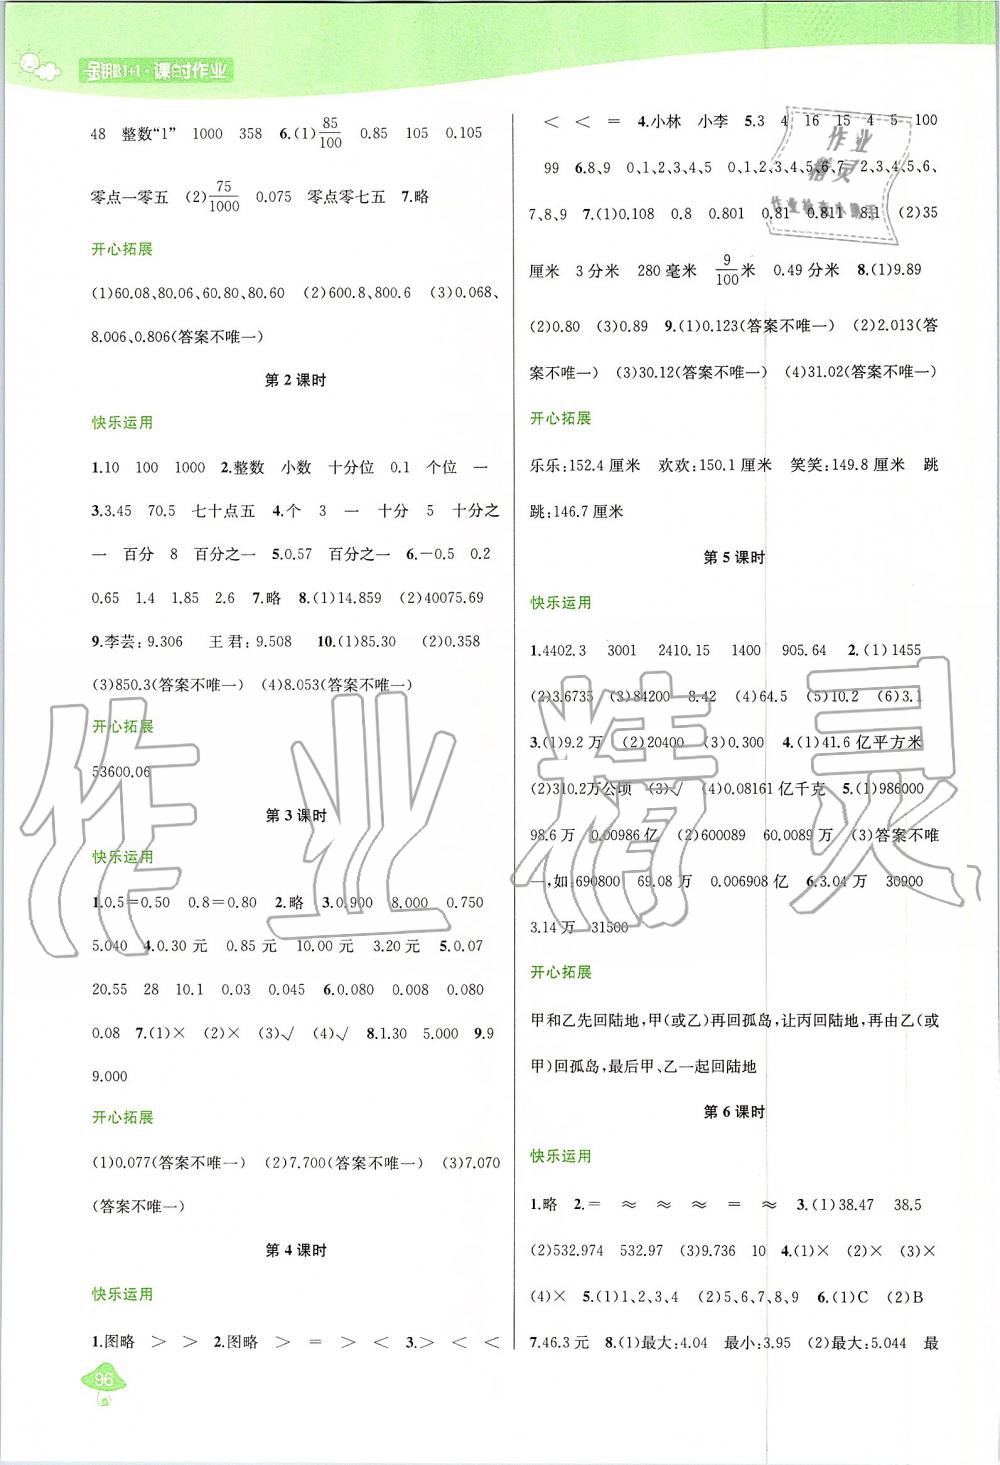 金钥匙1+1·课时作业
48 整数“1” 1000 358 6.(1)85/100 0.85 105 0.105
零点一零五 (2)75/1000 0.075 零点零七五 7.略
开心拓展
(1)60.08、80.06、60.80、80.60 (2)600.8、800.6 (3)0.068、
8.006、0.806(答案不唯一)
第2课时
快乐运用
1.10 100 1000 2.整数 小数 十分位 0.1 个位 一
3.3.45 70.5 七十点五 4.个 3 一 十分 5 十分之
一 百分 8 百分之一 5.0.57 百分之一 6.-0.5 0.2
0.65 1.4 1.85 2.6 7.略 8.(1)14.859 (2)40075.69
9.李芸:9.306 王君:9.508 10.(1)85.30 (2)0.358
(3)850.3(答案不唯一) (4)8.053(答案不唯一)
开心拓展
53600.06
第3课时
快乐运用
1.0.5=0.50 0.8=0.80 2.略 3.0.900 8.000 0.750
5.040 4.0.30元 0.85元 10.00元 3.20元 5.0.07
20.55 28 10.1 0.03 0.045 6.0.080 0.008 0.080
0.08 7.(1)× (2)× (3)√ (4)√ 8.1.30 5.000 9.9
9.000
开心拓展
(1)0.077(答案不唯一) (2)7.700(答案不唯一) (3)7.070
(答案不唯一)
第4课时
快乐运用
1.图略 > > 2.图略 > = > < 3.> < <
96
< < = 4.小林 小李 5.3 4 16 15 4 5 100
99 6.8、9 0、1、2、3、4、5 0、1、2、3、4、5、6、7 2、3、4、5、6、
7、8、9 7.(1)0.108 0.8 0.801 0.81 0.811 8.1 (2)35
厘米 3分米 280毫米 9/100米 0.49分米 8.(1)9.89
(2)0.80 (3)0.89 9.(1)0.123(答案不唯一) (2)2.013(答
案不唯一) (3)30.12(答案不唯一) (4)31.02(答案不唯一)
开心拓展
乐乐:152.4厘米 欢欢:150.1厘米 笑笑:149.8厘米 跳
跳:146.7厘米
第5课时
快乐运用
1.4402.3 3001 2410.15 1400 905.64 2.(1)1455
(2)3.6735 (3)84200 8.42 (4)64.5 (5)10.2 (6)3.1
3.(1)9.2万 (2)20400 (3)0.300 4.(1)41.6亿平方米
(2)310.2万公顷 (3)√ (4)0.08161亿千克 5.(1)986000
98.6万 0.00986亿 (2)600089 60.0089万 (3)答案不唯
一,如690800 69.08万 0.006908亿 6.3.04万 30900
3.14万 31500
开心拓展
甲和乙先回陆地,甲(或乙)再回孤岛,让丙回陆地,再由乙(或
甲)回孤岛,最后甲、乙一起回陆地
第6课时
快乐运用
1.略 2.= ≈ ≈ ≈ = ≈ 3.(1)38.47 38.5
(2)532.974 532.97 (3)9.736 10 4.(1)× (2)× (3)×
(4)× 5.(1)1、2、3、4 (2)5、6、7、8、9 6.(1)C (2)B
7.46.3元 8.(1)最大:4.04 最小:3.95 (2)最大:5.044 最
作业
精灵
作业检查小助手
作业精灵